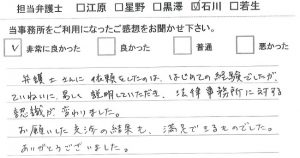 担当弁護士 □江原 □星野 □黒澤 ☑石川 □若生
当事務所をご利用になったご感想をお聞かせ下さい。
☑ 非常に良かった □ 良かった □ 普通 □ 悪かった
弁護士さんに依頼をしたのは、はじめての経験でしたが、
ていねいに、易しく説明していただき、法律事務所に対する
認識が変わりました。
お願いした交渉の結果も、満足できるものでした。
ありがとうございました。